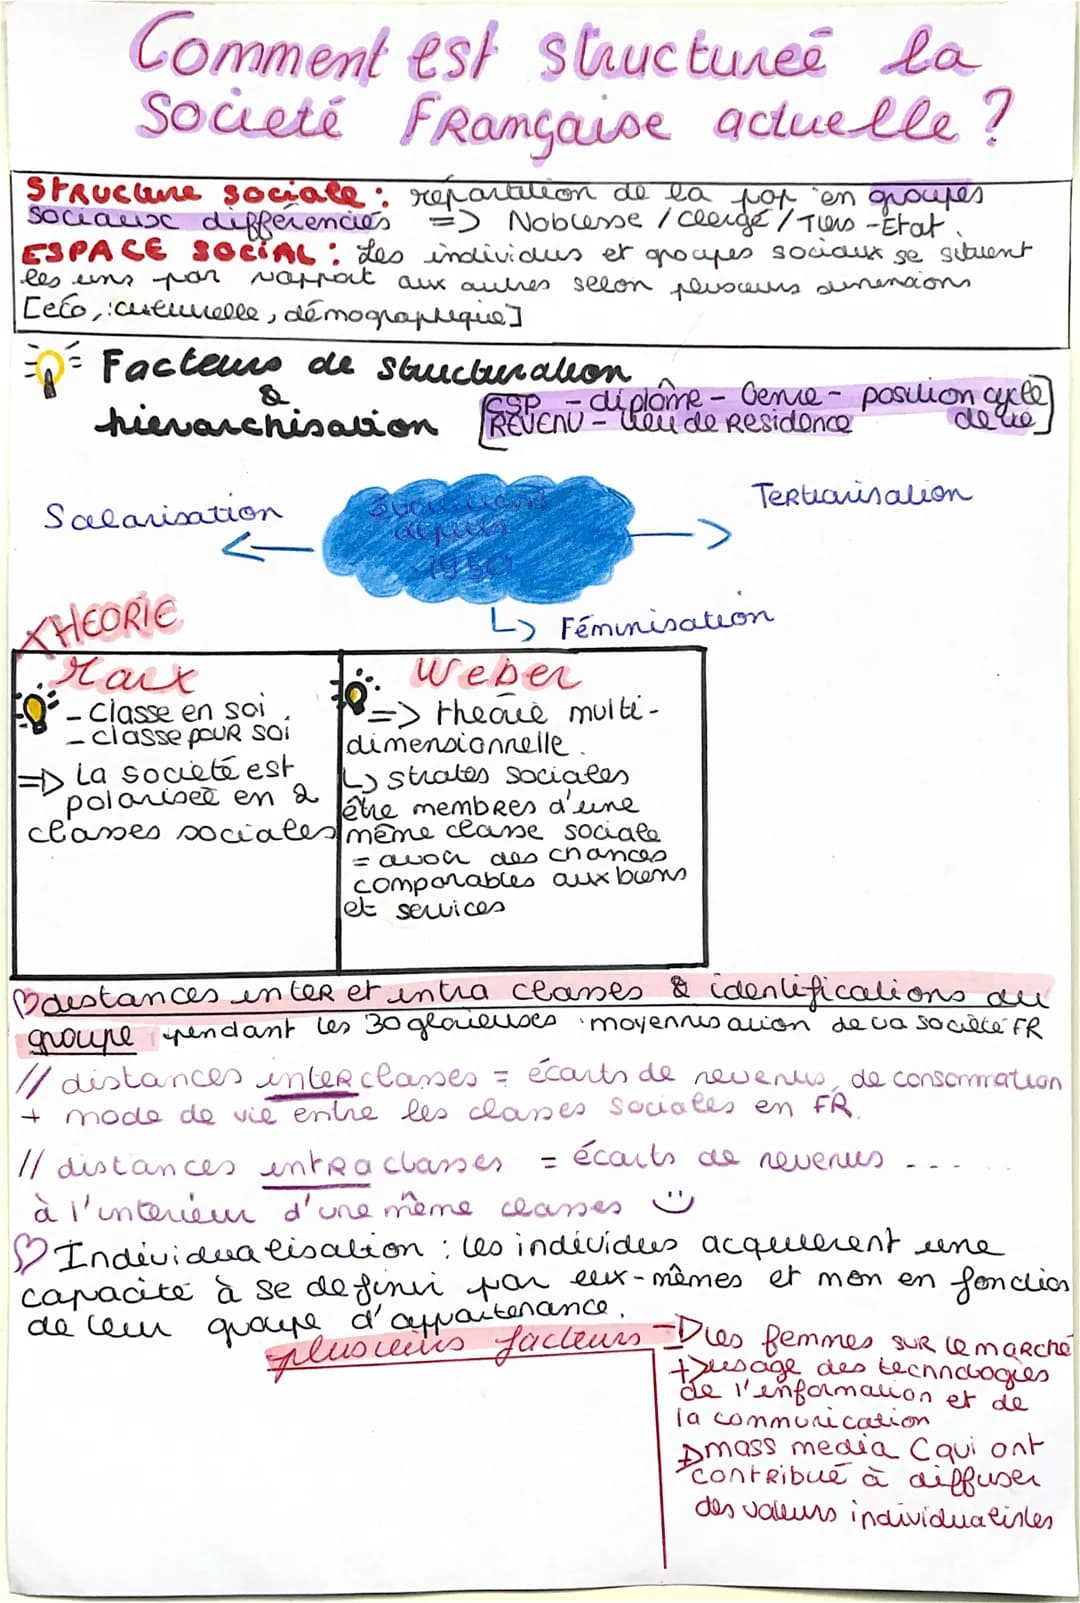 Comment est structureé la
Societé Française actuelle ?
Structure sociale : répartition de la pop en groupes
sociaux différenciés => Noblesse / clergé / Tiers-Etat.
ESPACE SOCIAL : Les individus et groupes sociaux se situent
les uns par rapport aux autres selon plusieurs dimensions
[eco, culturelle, démographique]
Facteurs de structuration
&
hiérarchisation
[CSP - diplôme - Genre - position cycle
REVENU - lieu de Residence de vie]
Salarisation
Évolutions
depuis
1950
Tertiarisation
Féminisation
THEORIE
Marx
- classe en soi
- classe pour soi
=> La societé est
polariseé en 2
classes sociales
Weber
=> theorie multi-
dimensionnelle.
↳ strates sociales
être membres d'une
même classe sociale
= avoir des chances
comparables aux biens
et services
distances inter et intra classes & identifications au
groupe pendant les 30 glorieuses : moyennisation de la société FR
// distances interclasses = écarts de revenus, de consommation
+ mode de vie entre les classes sociales en FR.
// distances intraclasses = écarts de revenus ...
à l'interieur d'une même classes
Individualisation : les individus acquierent une
capacité à se definir par eux-mêmes et non en fonction
de leur groupe d'appartenance.
plusieurs facteurs
les femmes sur le marché
+ usage des technologies
de l'information et de
la communication
mass media (qui ont
contribué à diffuser
des valeurs individualistes